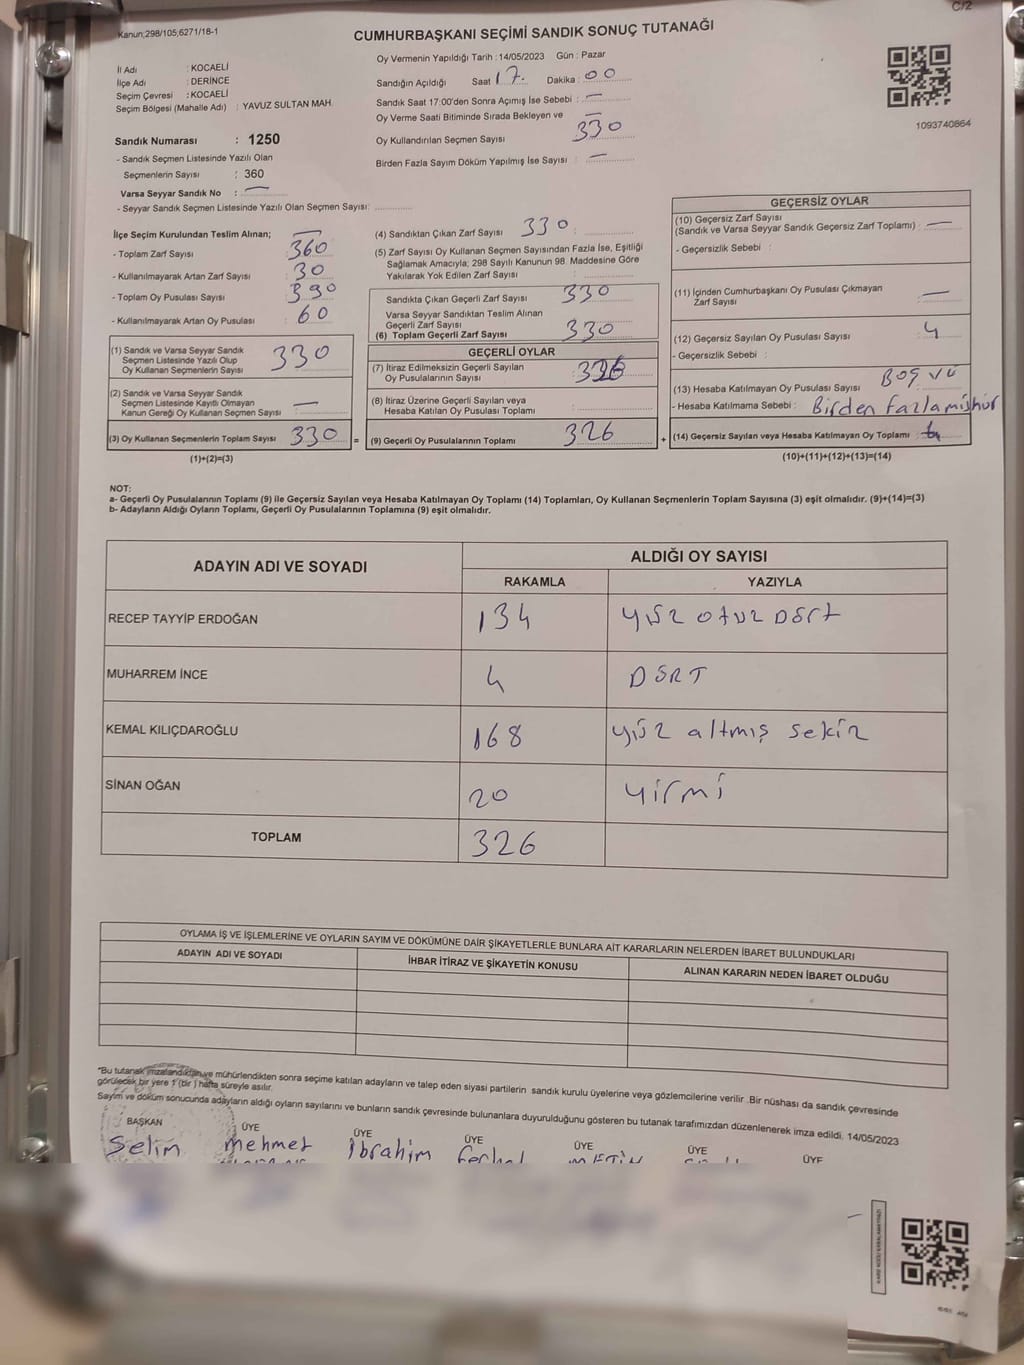 C/2
Kanun;298/105;6271/18-1
CUMHURBAŞKANI SEÇİMİ SANDIK SONUÇ TUTANAĞI
İl Adı : KOCAELİ
İlçe Adı : DERİNCE
Seçim Çevresi : KOCAELİ
Seçim Bölgesi (Mahalle Adı) : YAVUZ SULTAN MAH.
Sandık Numarası : 1250
- Sandık Seçmen Listesinde Yazılı Olan
Seçmenlerin Sayısı : 360
Varsa Seyyar Sandık No : —
- Seyyar Sandık Seçmen Listesinde Yazılı Olan Seçmen Sayısı:
Oy Vermenin Yapıldığı Tarih : 14/05/2023 Gün : Pazar
Sandığın Açıldığı Saat 17. Dakika : 00
Sandık Saat 17:00'den Sonra Açımış İse Sebebi : —
Oy Verme Saati Bitiminde Sırada Bekleyen ve —
Oy Kullandırılan Seçmen Sayısı : 330
Birden Fazla Sayım Döküm Yapılmış İse Sayısı : —
1093740864
İlçe Seçim Kurulundan Teslim Alınan; —
- Toplam Zarf Sayısı : 360
- Kullanılmayarak Artan Zarf Sayısı : 30
- Toplam Oy Pusulası Sayısı : 390
- Kullanılmayarak Artan Oy Pusulası : 60
(1) Sandık ve Varsa Seyyar Sandık
Seçmen Listesinde Yazılı Olup
Oy Kullanan Seçmenlerin Sayısı : 330
(2) Sandık ve Varsa Seyyar Sandık
Seçmen Listesinde Kayıtlı Olmayan
Kanun Gereği Oy Kullanan Seçmen Sayısı : —
(3) Oy Kullanan Seçmenlerin Toplam Sayısı : 330 =
(1)+(2)=(3)
(4) Sandıktan Çıkan Zarf Sayısı 330 :
(5) Zarf Sayısı Oy Kullanan Seçmen Sayısından Fazla İse, Eşitliği
Sağlamak Amacıyla; 298 Sayılı Kanunun 98. Maddesine Göre
Yakılarak Yok Edilen Zarf Sayısı :
Sandıkta Çıkan Geçerli Zarf Sayısı : 330
Varsa Seyyar Sandıktan Teslim Alınan
Geçerli Zarf Sayısı :
(6) Toplam Geçerli Zarf Sayısı : 330
GEÇERLİ OYLAR
(7) İtiraz Edilmeksizin Geçerli Sayılan
Oy Pusulalarının Sayısı : 326
(8) İtiraz Üzerine Geçerli Sayılan veya
Hesaba Katılan Oy Pusulası Toplamı :
(9) Geçerli Oy Pusulalarının Toplamı : 326 +
GEÇERSİZ OYLAR
(10) Geçersiz Zarf Sayısı
(Sandık ve Varsa Seyyar Sandık Geçersiz Zarf Toplamı) : —
- Geçersizlik Sebebi :
(11) İçinden Cumhurbaşkanı Oy Pusulası Çıkmayan
Zarf Sayısı : —
(12) Geçersiz Sayılan Oy Pusulası Sayısı : 4
- Geçersizlik Sebebi :
(13) Hesaba Katılmayan Oy Pusulası Sayısı :
- Hesaba Katılmama Sebebi : Birden fazla mühür
(14) Geçersiz Sayılan veya Hesaba Katılmayan Oy Toplamı : 4
(10)+(11)+(12)+(13)=(14)
NOT:
a- Geçerli Oy Pusulalarının Toplamı (9) ile Geçersiz Sayılan veya Hesaba Katılmayan Oy Toplamı (14) Toplamları, Oy Kullanan Seçmenlerin Toplam Sayısına (3) eşit olmalıdır. (9)+(14)=(3)
b- Adayların Aldığı Oyların Toplamı, Geçerli Oy Pusulalarının Toplamına (9) eşit olmalıdır.
ADAYIN ADI VE SOYADI ALDIĞI OY SAYISI
RAKAMLA YAZIYLA
RECEP TAYYİP ERDOĞAN 134 yüz otuz Dört
MUHARREM İNCE 4 DÖRT
KEMAL KILIÇDAROĞLU 168 yüz altmış sekiz
SİNAN OĞAN 20 yirmi
TOPLAM 326
OYLAMA İŞ VE İŞLEMLERİNE VE OYLARIN SAYIM VE DÖKÜMÜNE DAİR ŞİKAYETLERLE BUNLARA AİT KARARLARIN NELERDEN İBARET BULUNDUKLARI
ADAYIN ADI VE SOYADI İHBAR İTİRAZ VE ŞİKAYETİN KONUSU ALINAN KARARIN NEDEN İBARET OLDUĞU
"Bu tutanak imzalandıktan ve mühürlendikten sonra seçime katılan adayların ve talep eden siyasi partilerin sandık kurulu üyelerine veya gözlemcilerine verilir .Bir nüshası da sandık çevresinde
görülecek bir yere 1 (bir ) hafta süreyle asılır.
Sayım ve döküm sonucunda adayların aldığı oyların sayılarını ve bunların sandık çevresinde bulunanlara duyurulduğunu gösteren bu tutanak tarafımızdan düzenlenerek imza edildi. 14/05/2023
BAŞKAN ÜYE ÜYE ÜYE ÜYE ÜYE ÜYE
Selim mehmet ibrahim ferhat METİN